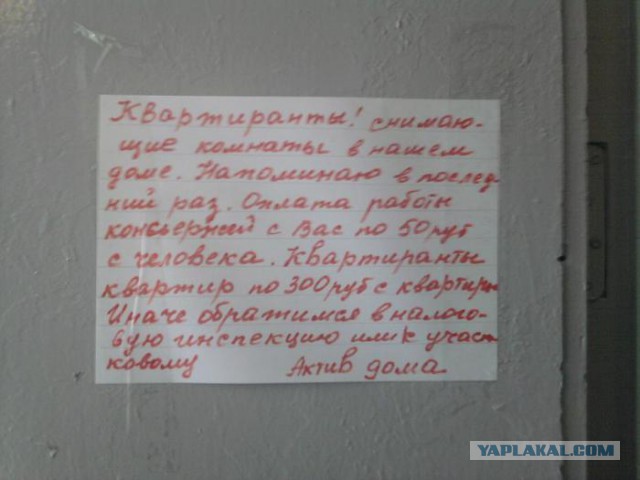 Квартиранты! снимаю-
щие комнаты в нашем
доме. Напоминаю в послед-
ний раз. Оплата работы
консьержей с Вас по 50 руб
с человека. Квартиранты
квартир по 300 руб с квартиры
Иначе обратимся в налого-
вую инспекцию или к участ
ковому Актив дома
YAPLAKAL.COM